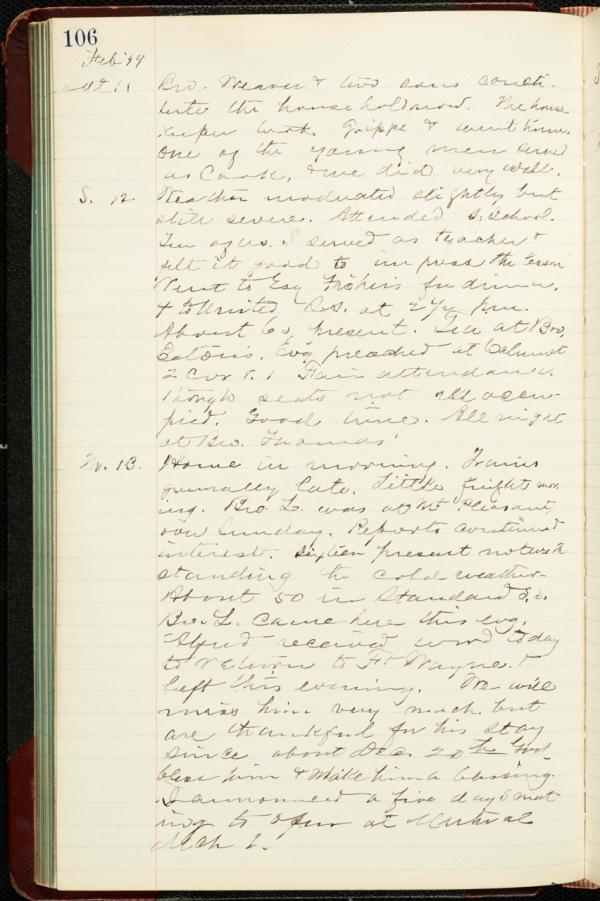 106
Feb '99
Sat 11 Bro. Weaver & two sons consti-
tute the household now. The house
keeper took Grippe & went home.
One of the young men served
as Cook, & we did very well.
S. 12. Weather moderated slightly but
still severe. Attended S. School.
Ten of us. I served as teacher &
felt it good to impress the lesson
Went to Esq for dinner,
& to United S.S. at 2 1/2 p.m.
About 60 present. Tea at Bro.
Eaton's. Evg preached at Calumet
2 Cor 5. 1 Fair attendance.
Though seats not all occu-
pied. Good time. All night
at Bro. Thomas'
M. 13. Home in morning. Trains
generally late. Little freight mov-
ing. Bro. L. was at Mt Pleasant
over Sunday. Reports continued
interest. Sixteen present notwith
standing the cold weather.
About 50 in Standard S.S.
Bro. L. came here this evg.
received word today
to return to Ft Wayne. &
left this evening. We will
miss him very much but
are thankful for his stay
since about Dec 20th God
bless him & Make him a blessing.
I announced a five days meet
ing to open at
Mch 1.